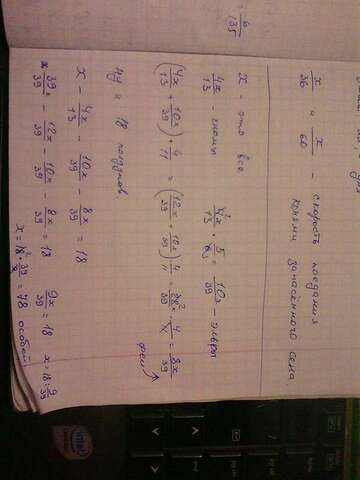 = 6/135
x/36 и x/60 - скорость поедания
конями запасённого сена
x - это все
4x/13 - гномы 4x/13 · 5/6 = 10x/39 - эльфы
(4x/13 + 10x/39) · 4/11 = (12x/39 + 10x/39) 4/11 = 22x/39 · 4/11 = 8x/39
феи
ну и 18
x - 4x/13 - 10x/39 - 8x/39 = 18
39x/39 - 12x/39 - 10x/39 - 8x/39 = 18 9x/39 = 18 x = 18 : 9/39
x = 18 · 39/9 = 78 особей
intel